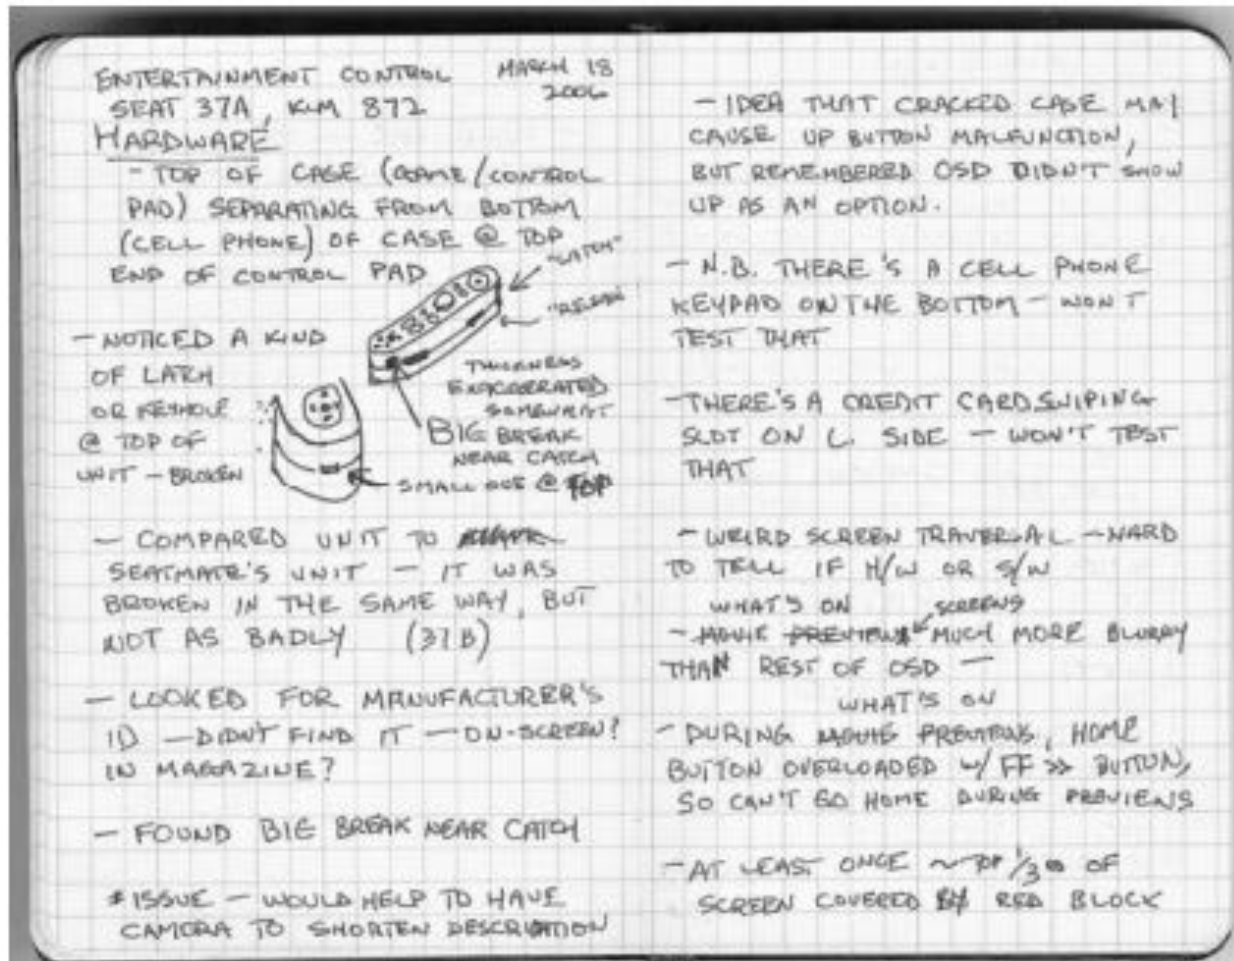 ENTERTAINMENT CONTROL MARCH 18
2006
SEAT 37A, KLM 872
HARDWARE
- TOP OF CASE (GAME/CONTROL
PAD) SEPARATING FROM BOTTOM
(CELL PHONE) OF CASE @ TOP
END OF CONTROL PAD
"CATCH"
- NOTICED A KIND
OF LATCH
OR KEYHOLE
@ TOP OF
UNIT - BROKEN
THICKNESS
EXAGGERATED
SOMEWHAT
BIG BREAK
NEAR CATCH
SMALL ONE @ TOP
- COMPARED UNIT TO
SEATMATE'S UNIT - IT WAS
BROKEN IN THE SAME WAY, BUT
NOT AS BADLY (37B)
- LOOKED FOR MANUFACTURER'S
ID - DIDN'T FIND IT - ON-SCREEN?
IN MAGAZINE?
- FOUND BIG BREAK NEAR CATCH
* ISSUE - WOULD HELP TO HAVE
CAMERA TO SHORTEN DESCRIPTION
- IDEA THAT CRACKED CASE MAY
CAUSE UP BUTTON MALFUNCTION,
BUT REMEMBERED OSD DIDN'T SHOW
UP AS AN OPTION.
- N.B. THERE'S A CELL PHONE
KEYPAD ON THE BOTTOM - WON'T
TEST THAT
- THERE'S A CREDIT CARD SWIPING
SLOT ON L. SIDE - WON'T TEST
THAT
- WEIRD SCREEN TRAVERSAL - HARD
TO TELL IF H/W OR S/W
WHAT'S ON SCREENS
- MOVIE PREVIEWS MUCH MORE BLURRY
THAN REST OF OSD -
WHAT'S ON
- DURING MOVIE PREVIEWS, HOME
BUTTON OVERLOADED W/ FF >> BUTTON,
SO CAN'T GO HOME DURING PREVIEWS
- AT LEAST ONCE ~ TOP 1/3 OF
SCREEN COVERED BY RED BLOCK